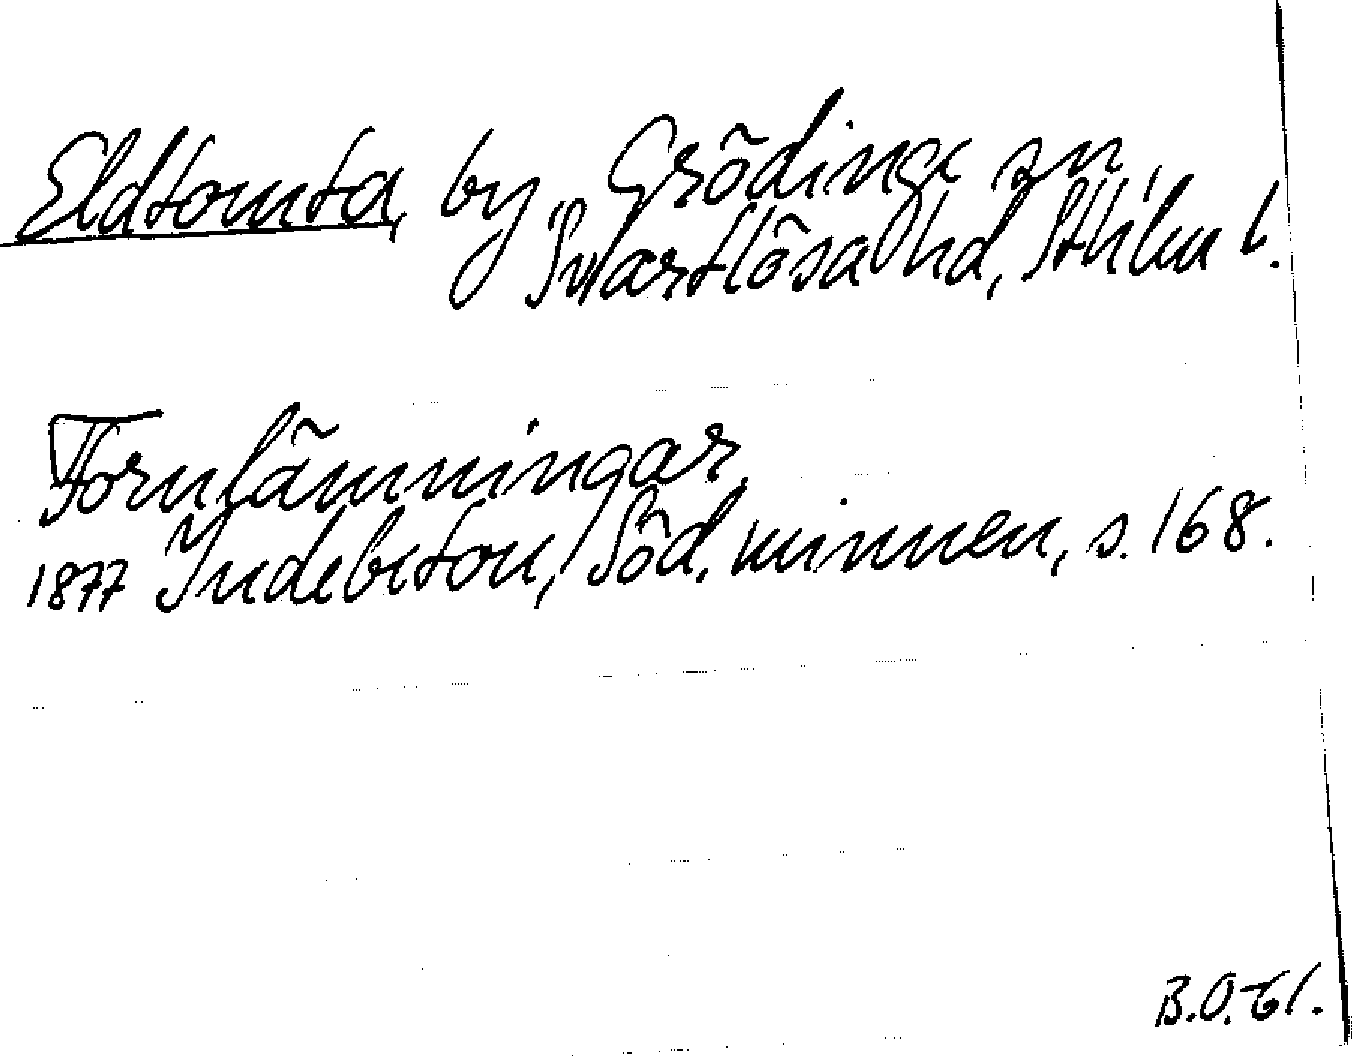 Eldtomta, by, Grödinge sn
Svartlösa hd, Sthlm l.
Fornlämningar
1877 Indebetou, Söd. minnen, s. 168.
B.O.-61.